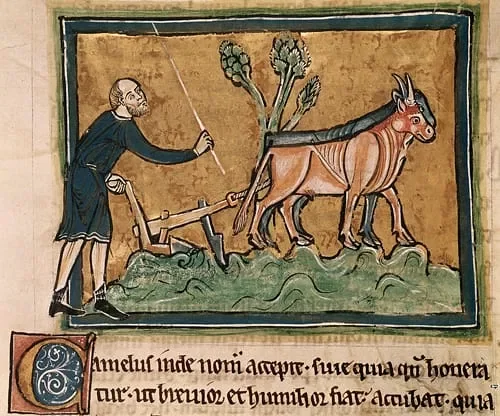 Camelus inde nom̅ accepit · siue quia qn̅ honera
tur · ut breuior et humilior fiat · accubat · quia